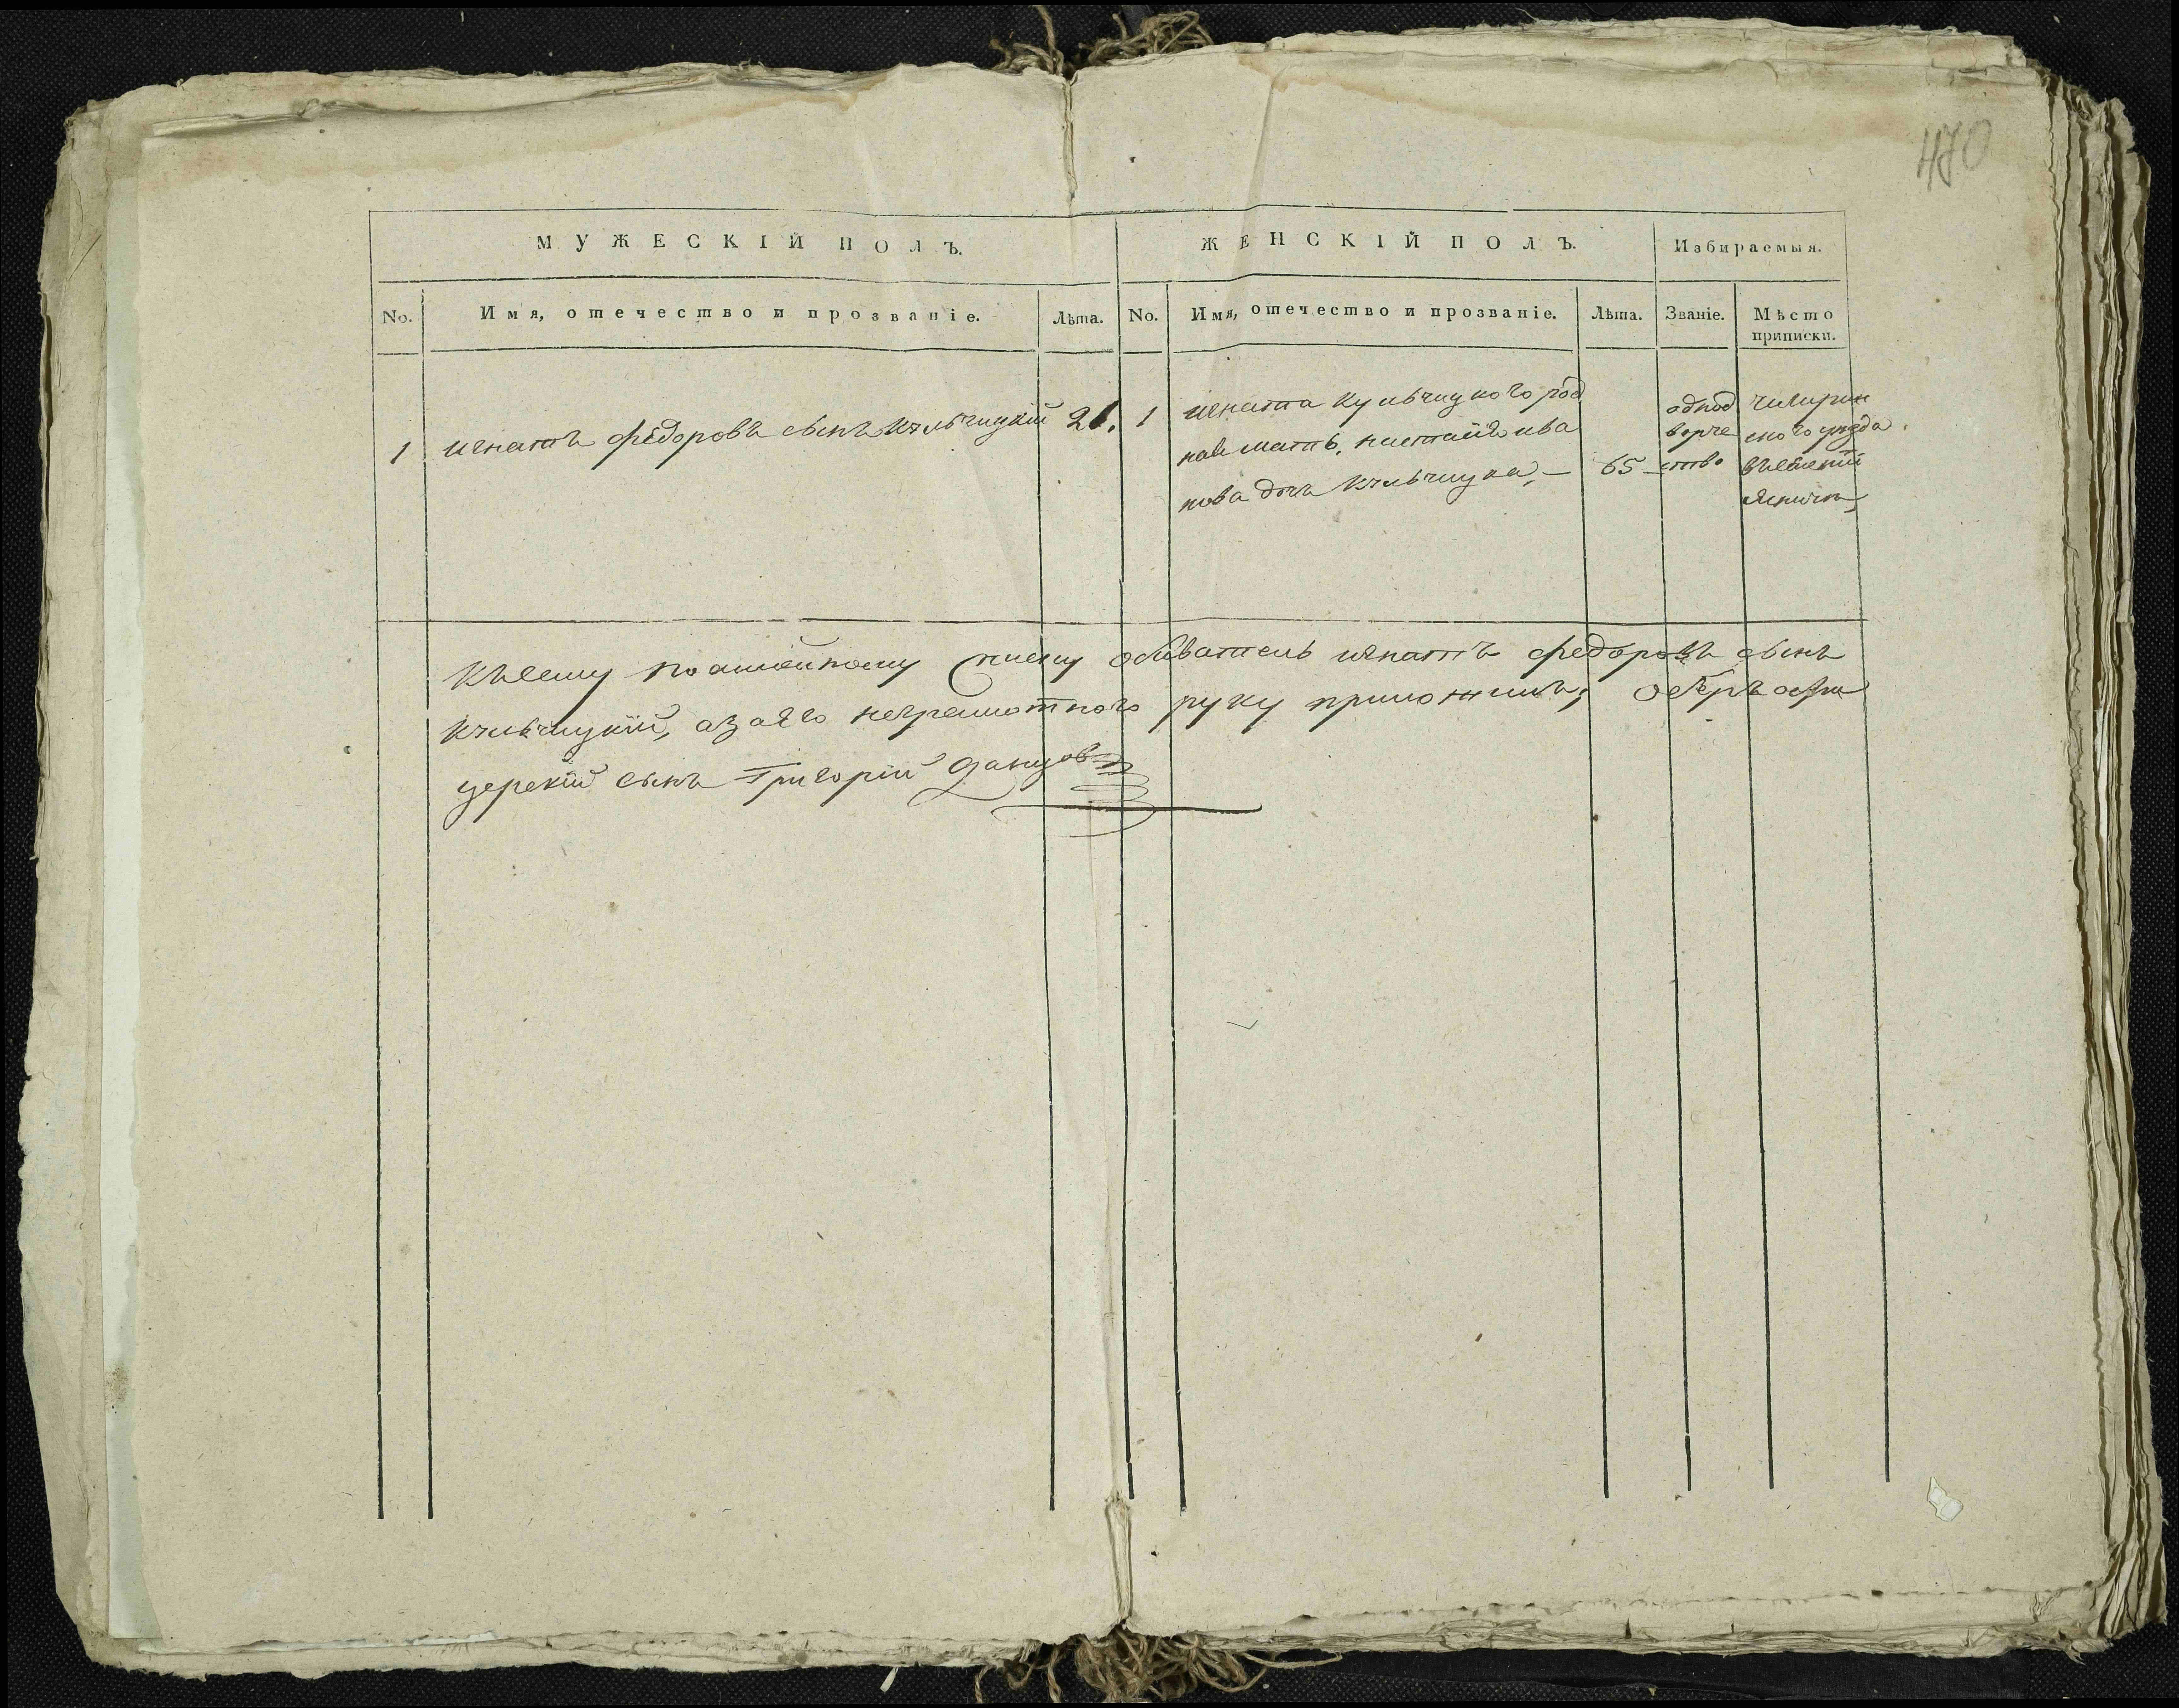 470
МУЖЕСКІЙ ПОЛЪ.
ЖЕНСКІЙ ПОЛЪ.
Избираемыя.
No.
Имя, отечество и прозваніе.
Лѣта.
No.
Имя, отечество и прозваніе.
Лѣта.
Званіе.
Мѣсто
приписки.
1
игнатъ федоровъ сынъ кульчицкій
21.
1
игната кульчицкого род
ная мать, ива
нова дочь кульчицка,
65
однод
ворче
ство
чигирин
ского уезда
къ сему посемейному списку обыватель игнатъ федоровъ сынъ
кульчицкій, а за его неграмотного руку приложилъ, оберъ офи
церскій сынъ Григорій Данцовъ